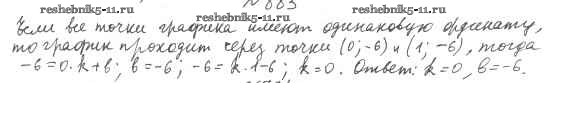 № 663
www.reshebnik11-11.ru
Если все точки графика имеют одинаковую ординату,
то график проходит через точки (0; -6) и (1; -6), тогда
-6=0·k+b; b=-6; -6=k·1-6; k=0. Ответ: k=0, b=-6.